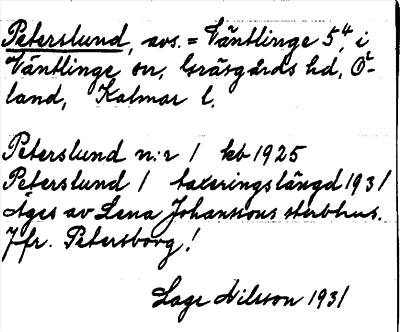 Peterslund, avs. = Väntlinge 5⁴, i
Väntlinge sn, Gräsgårds hd, Ö-
land, Kalmar l.
Peterslund n:r 1 kb 1925
Peterslund 1 taxeringslängd 1931
Äges av Lena Johanssons sterbhus.
Jfr. Petersborg!
Lage Nilsson 1931